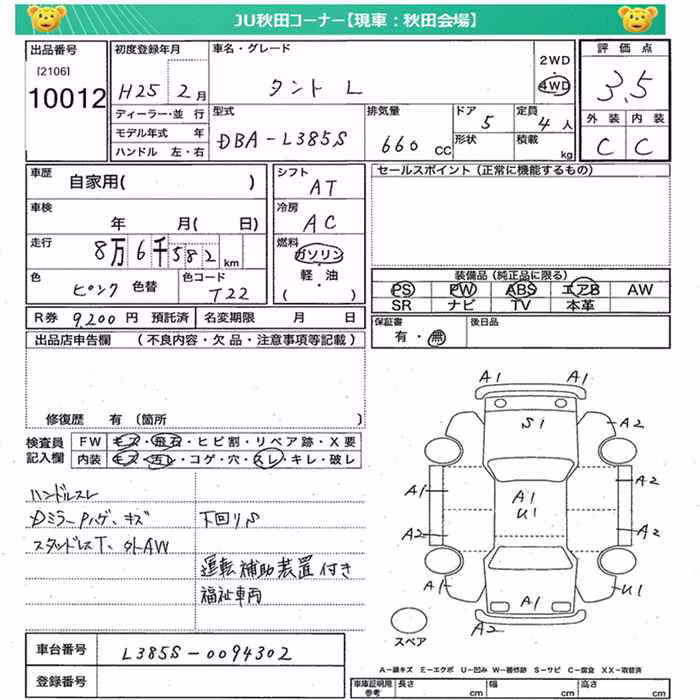 JU秋田コーナー【現車：秋田会場】
出品番号
[2106]
10012
初度登録年月
H25 2月
ディーラー・並 行
モデル年式 年
ハンドル 左・右
車名・グレード
タント L
2WD
4WD
型式
DBA-L385S
排気量
660 cc
ドア
5
形状
定員
4 人
積載
kg
評 価 点
3.5
外 装 内 装
C C
車歴
自家用( )
車検
年 月( 日)
走行
8万6千582 km
色
ピンク 色替
色コード
T22
シフト
AT
冷房
AC
燃料
ガソリン
軽・油
( )
セールスポイント（正常に機能するもの）
装備品（純正品に限る）
PS PW ABS エアB AW
SR ナビ TV 本革
保証書
有・無
後日品
R券 9,200 円 預託済 名変期限 月 日
出品店申告欄 （不良内容・欠品・注意事項等記載）
修復歴 有（箇所 ）
検査員
記入欄
FW キズ・飛石・ヒビ割・リペア跡・X要
内装 キズ・汚レ・コゲ・穴・スレ・キレ・破レ
ハンドルスレ
DミラーPハゲ、キズ 下回りS
スタッドレスT、外AW
運転補助装置付き
福祉車両
車台番号 L385S-0094302
登録番号
A1 A1
S1
A2
A1
A2
A1
U1
A2
A2
A1
A1
U1
A2
スペア
A－線キズ E－エクボ U－凹み W－補修跡 S－サビ C－腐食 XX－取替済
車庫証明用
参考
長さ cm
幅 cm
高さ cm